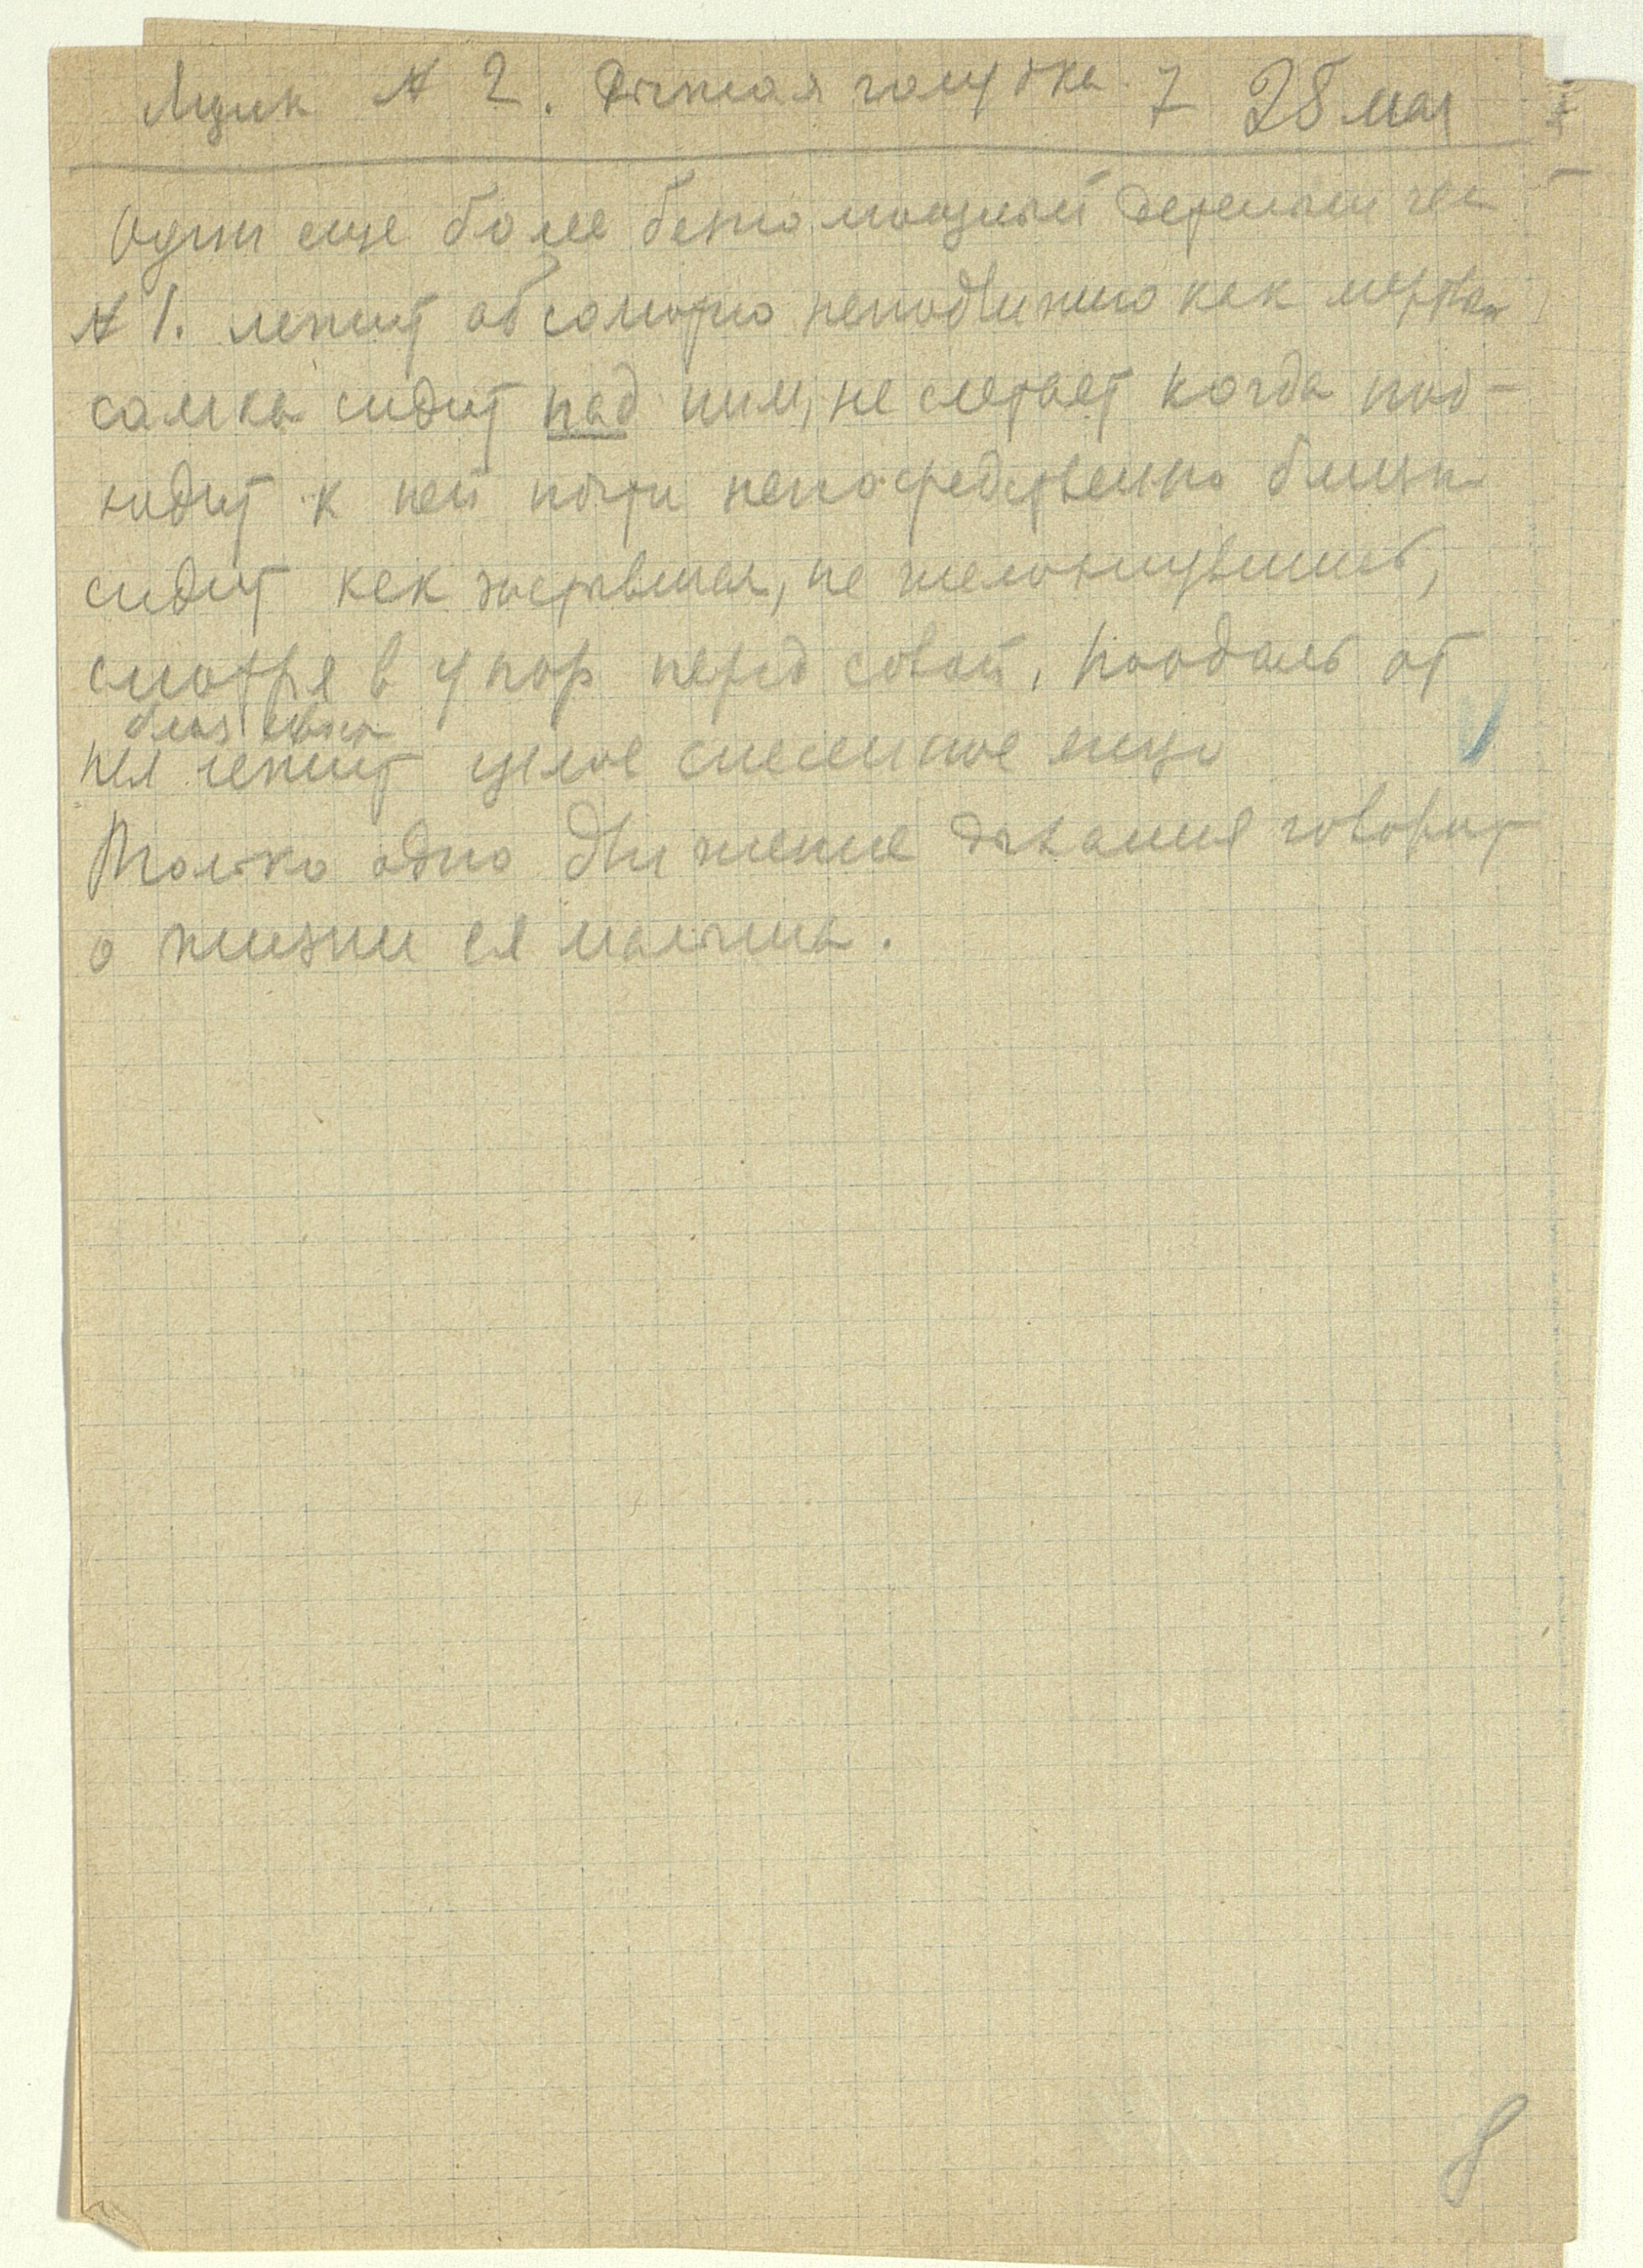 Ящик № 2. Дикая голубка 7 28 мая
Один еще более беспомощный детеныш чем
№ 1. лежит абсолютно неподвижно как мертвый
самка сидит над ним, не слетает когда под-
ходит к ней почти непосредственно близко
сидит как застывшая, не шелохнувшись,
смотря в упор перед собой. Поодаль от
нея лежит целое снесенное яйцо
Только одно движение дыхания говорит
о жизни ея малыша.
8